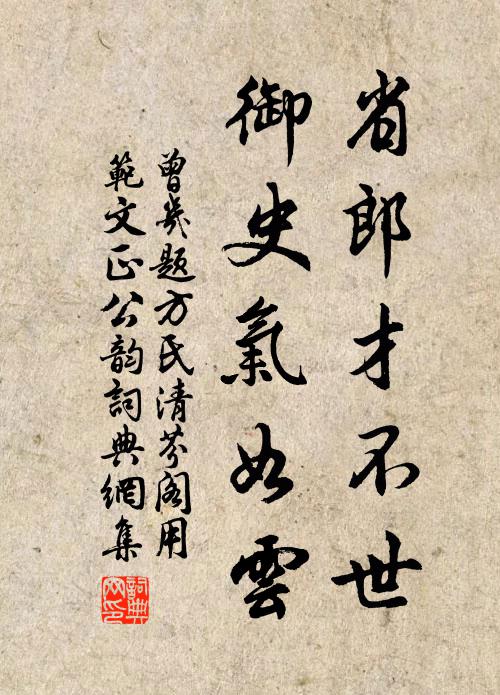 省郎才不世
御史氣如雲
曾幾題方氏清芬閣用
範文正公韵詞典網集
詞典網印